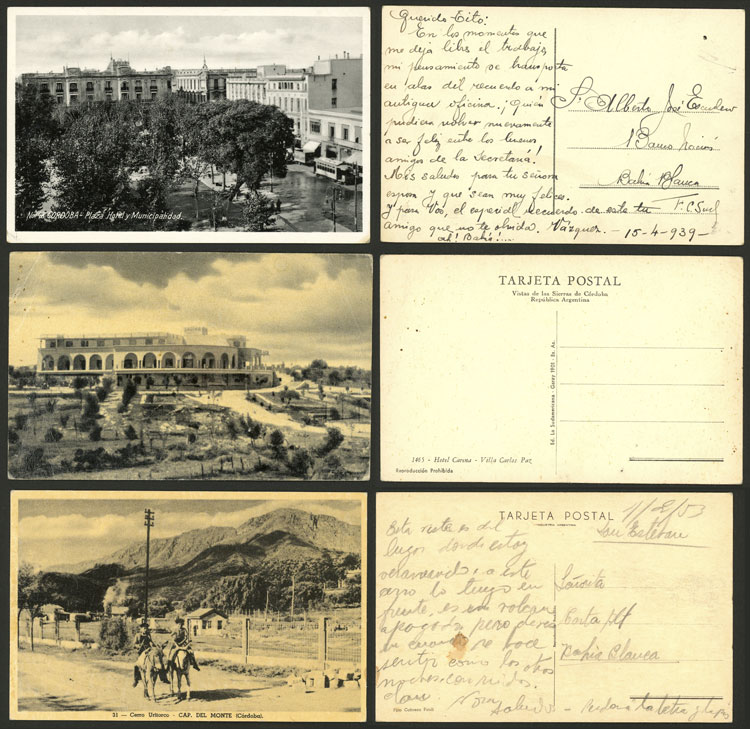 CORDOBA - Plaza Hotel y Municipalidad.
Querido Tito:
En los momentos que
me deja libre el trabajo,
mi pensamiento se transporta
en alas del recuerdo a mi
antigua oficina. ¡Quien
pudiera volver nuevamente
a ser feliz entre los buenos
amigos de la Secretaría!
Mis saludos para tu señora
esposa y que sean muy felices.
Y para Vos, el especial recuerdo de este tu
amigo que no te olvida. Vázquez.- 15-4-939-
Sr. Alberto José
Bahía Blanca
F.C. Sud
TARJETA POSTAL
Vistas de las Sierras de Córdoba
República Argentina
Ed. La Sudamericana - Garay 1901 - Bs. As.
1465 - Hotel Carena - Villa Carlos Paz
Reproducción Prohibida
21 — Cerro Uritorco — CAP. DEL MONTE (Córdoba).
TARJETA POSTAL
INDUSTRIA ARGENTINA
San Esteban
Esta vista es del
lugar donde estoy
veraneando a este
lo tengo en
frente, es un volcan
apagado pero
en cuando se hace
sentir como los otros
noches corridos.
Bahia Blanca